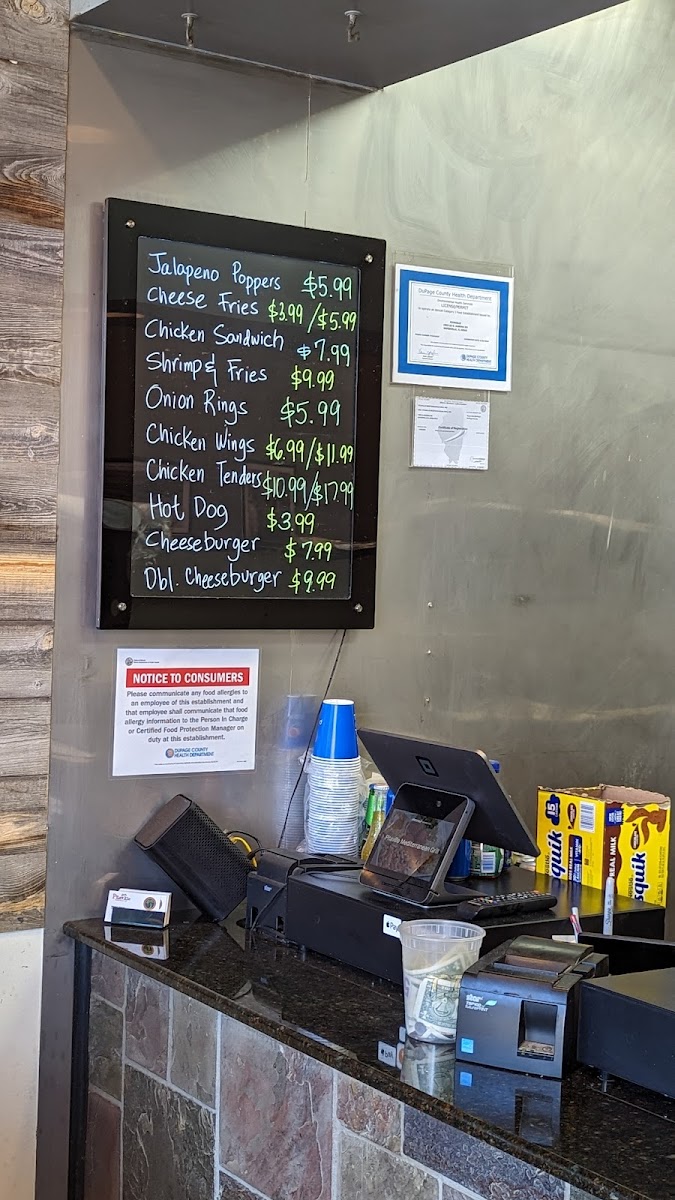 Jalapeno Poppers $5.99
Cheese Fries $3.99/$5.99
Chicken Sandwich $7.99
Shrimp & Fries $9.99
Onion Rings $5.99
Chicken Wings $6.99/$11.99
Chicken Tenders $10.99/$17.99
Hot Dog $3.99
Cheeseburger $7.99
Dbl. Cheeseburger $9.99
DuPage County Health Department
NOTICE TO CONSUMERS
Please communicate any food allergies to
an employee of this establishment and
that employee shall communicate that food
allergy information to the Person In Charge
or Certified Food Protection Manager on
duty at this establishment.
DUPAGE COUNTY
HEALTH DEPARTMENT
Mediterranean Grill
15
squik
REAL MILK
squik
Pay
star